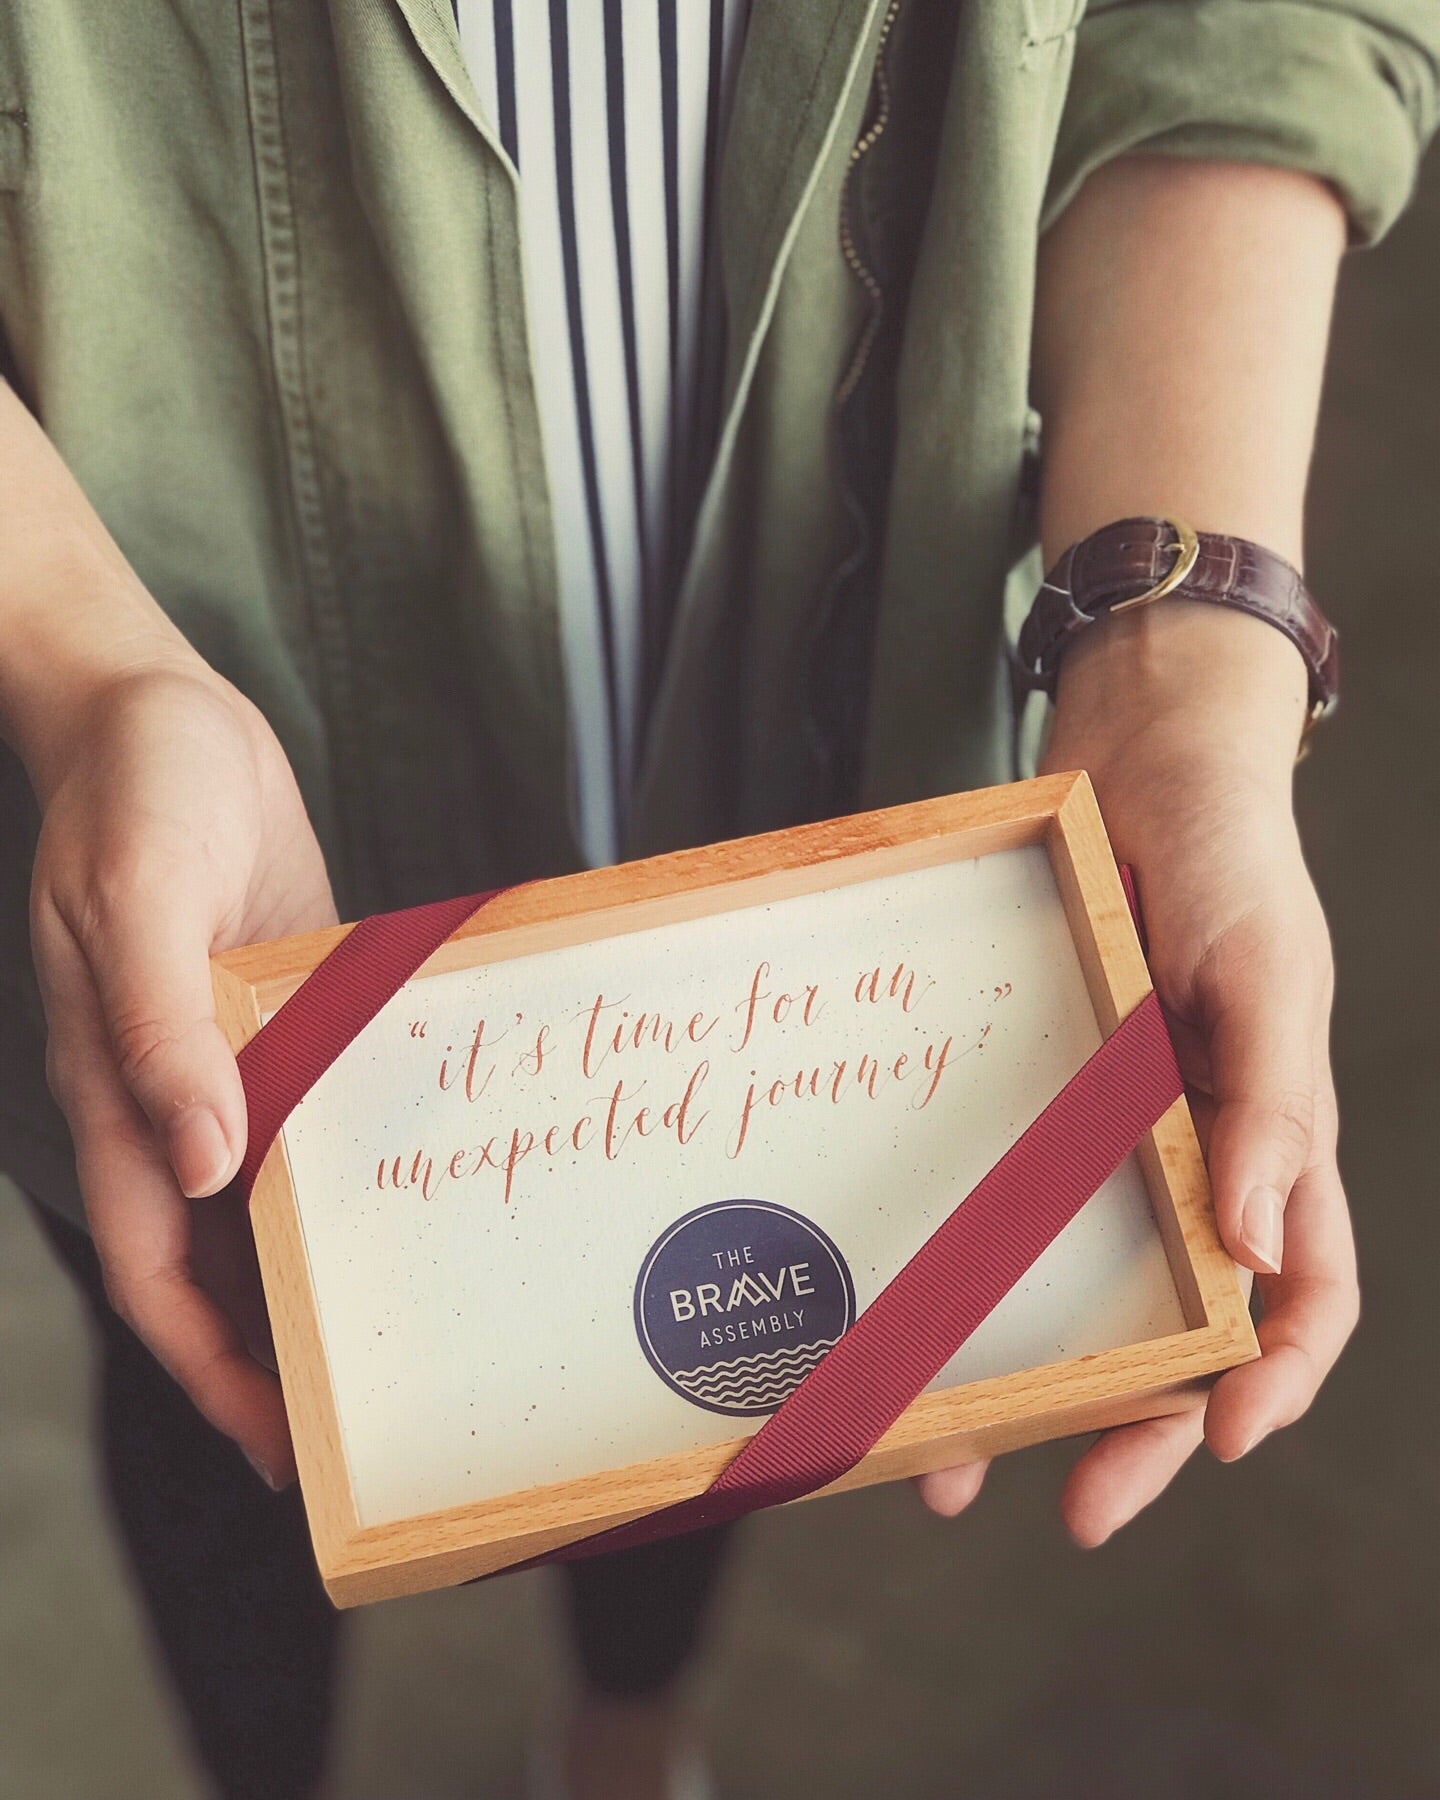 “it's time for an
unexpected journey!”
THE
BRAVE
ASSEMBLY